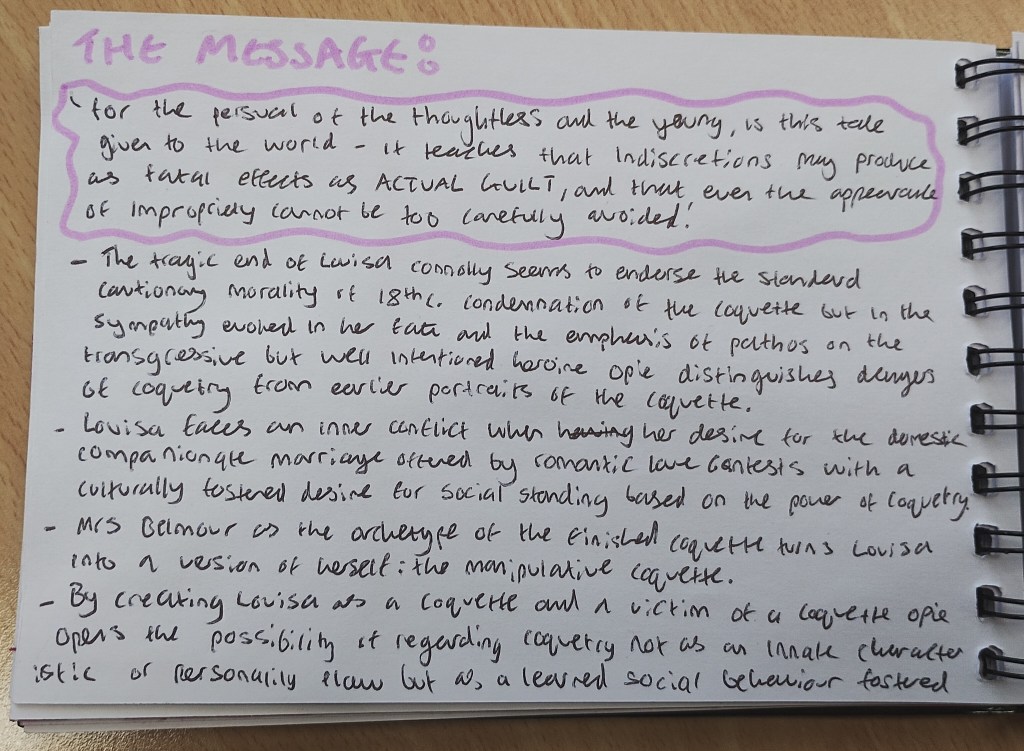 THE MESSAGE:
'for the persual of the thoughtless and the young, is this tale
given to the world - it teaches that indiscretions may produce
as fatal effects as ACTUAL GUILT, and that even the appearance
of impropriety cannot be too carefully avoided!
- The tragic end of Louisa Connolly seems to endorse the standard
cautionary morality of 18thc. condemnation of the coquette but in the
sympathy evoked in her fate and the emphasis of pathos on the
transgressive but well intentioned heroine opie distinguishes dangers
of coquetry from earlier portraits of the coquette.
- Louisa faces an inner conflict when having her desire for the domestic
companionate marriage offered by romantic love contests with a
culturally fostered desire for social standing based on the power of coquetry.
- Mrs Belmour as the archetype of the finished coquette turns Louisa
into a version of herself: the manipulative coquette.
- By creating Louisa as a coquette and a victim of a coquette opie
opens the possibility of regarding coquetry not as an innate character
istic or personality flaw but as a learned social behaviour fostered